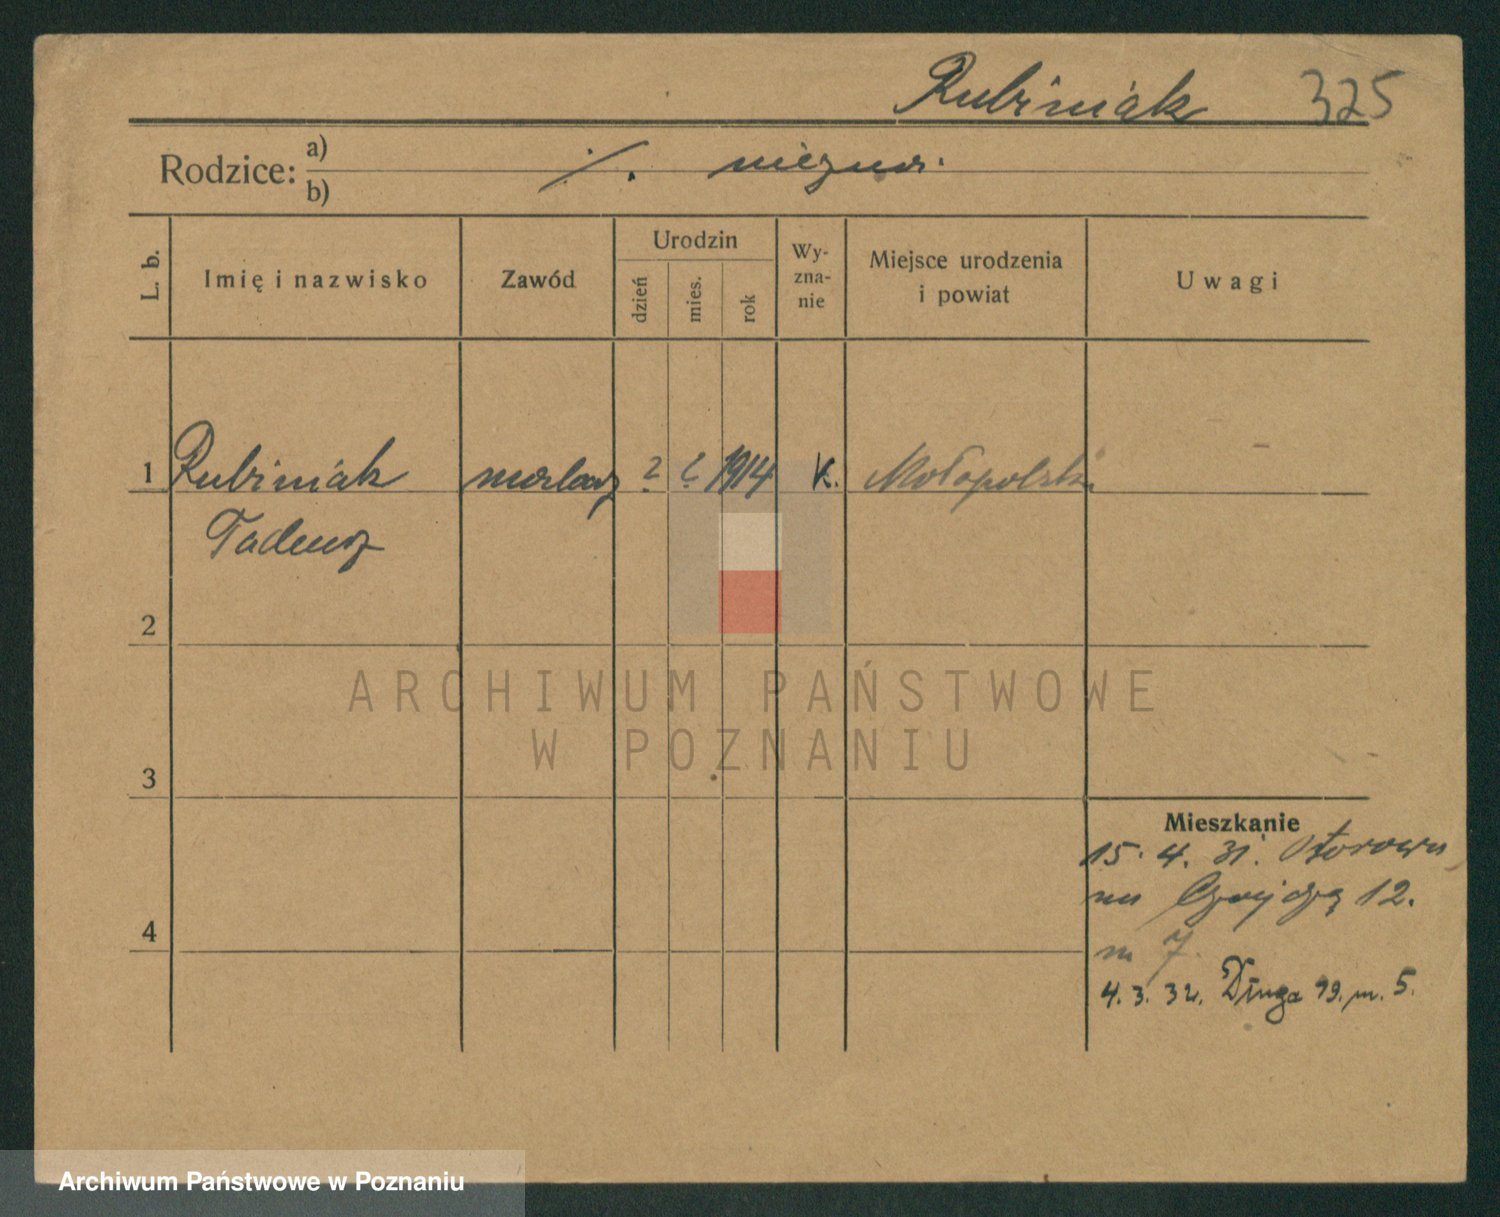 Rubiniak 325
Rodzice: a)
b)
./. niezna.
L. b.
Imię i nazwisko
Zawód
Urodzin
dzień
mies.
rok
Wy-
zna-
nie
Miejsce urodzenia
i powiat
Uwagi
1 Rubiniak malarz ? ? 1914 K. Małopolska
Tadeusz
2
ARCHIWUM PAŃSTWOWE
W POZNANIU
3
Mieszkanie
15. 4. 31.
12.
4
m 7.
4. 3. 32. Długa m. 5.
Archiwum Państwowe w Poznaniu